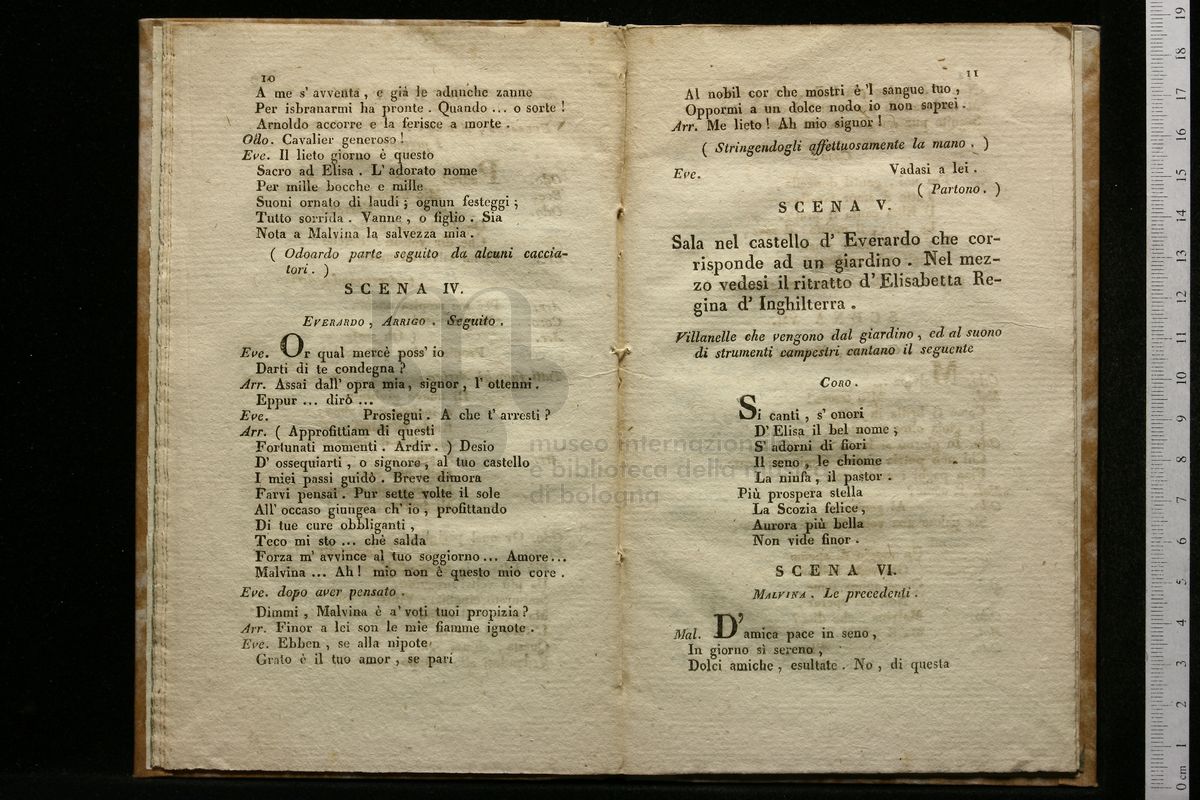 10
A me s' avventa , e già le adunche zanne
Per isbranarmi ha pronte . Quando ... o sorte !
Arnoldo accorre e la ferisce a morte .
Odo. Cavalier generoso !
Eve. Il lieto giorno è questo
Sacro ad Elisa . L' adorato nome
Per mille bocche e mille
Suoni ornato di laudi ; ognun festeggi ;
Tutto sorrida . Vanne , o figlio . Sia
Nota a Malvina la salvezza mia .
( Odoardo parte seguito da alcuni caccia-
tori . )
SCENA IV.
EVERARDO , ARRIGO . Seguito .
Eve. Or qual mercè poss' io
Darti di te condegna ?
Arr. Assai dall' opra mia, signor , l' ottenni .
Eppur ... dirò ...
Eve. Prosiegui . A che t' arresti ?
Arr. ( Approfittiam di questi
Fortunati momenti . Ardir. ) Desio
D' ossequiarti , o signore , al tuo castello
I miei passi guidò . Breve dimora
Farvi pensai . Pur sette volte il sole
All' occaso giungea ch' io , profittando
Di tue cure obbliganti ,
Teco mi sto ... chè salda
Forza m' avvince al tuo soggiorno ... Amore ...
Malvina ... Ah ! mio non è questo mio core .
Eve. dopo aver pensato .
Dimmi , Malvina è a' voti tuoi propizia ?
Arr. Finor a lei son le mie fiamme ignote .
Eve. Ebben , se alla nipote
Grato è il tuo amor , se pari
11
Al nobil cor che mostri è 'l sangue tuo ,
Oppormi a un dolce nodo io non saprei .
Arr. Me lieto ! Ah mio signor !
( Stringendogli affettuosamente la mano . )
Eve. Vadasi a lei .
( Partono . )
SCENA V.
Sala nel castello d' Everardo che cor-
risponde ad un giardino . Nel mez-
zo vedesi il ritratto d' Elisabetta Re-
gina d' Inghilterra .
Villanelle che vengono dal giardino , ed al suono
di strumenti campestri cantano il seguente
CORO .
Si canti , s' onori
D' Elisa il bel nome ;
S' adorni di fiori
Il seno , le chiome
La ninfa , il pastor .
Più prospera stella
La Scozia felice ,
Aurora più bella
Non vide finor .
SCENA VI.
MALVINA . Le precedenti .
Mal. D' amica pace in seno ,
In giorno sì sereno ,
Dolci amiche , esultate . No , di questa
museo internazionale
e biblioteca della musica
di bologna
0 cm 1 2 3 4 5 6 7 8 9 10 11 12 13 14 15 16 17 18 19